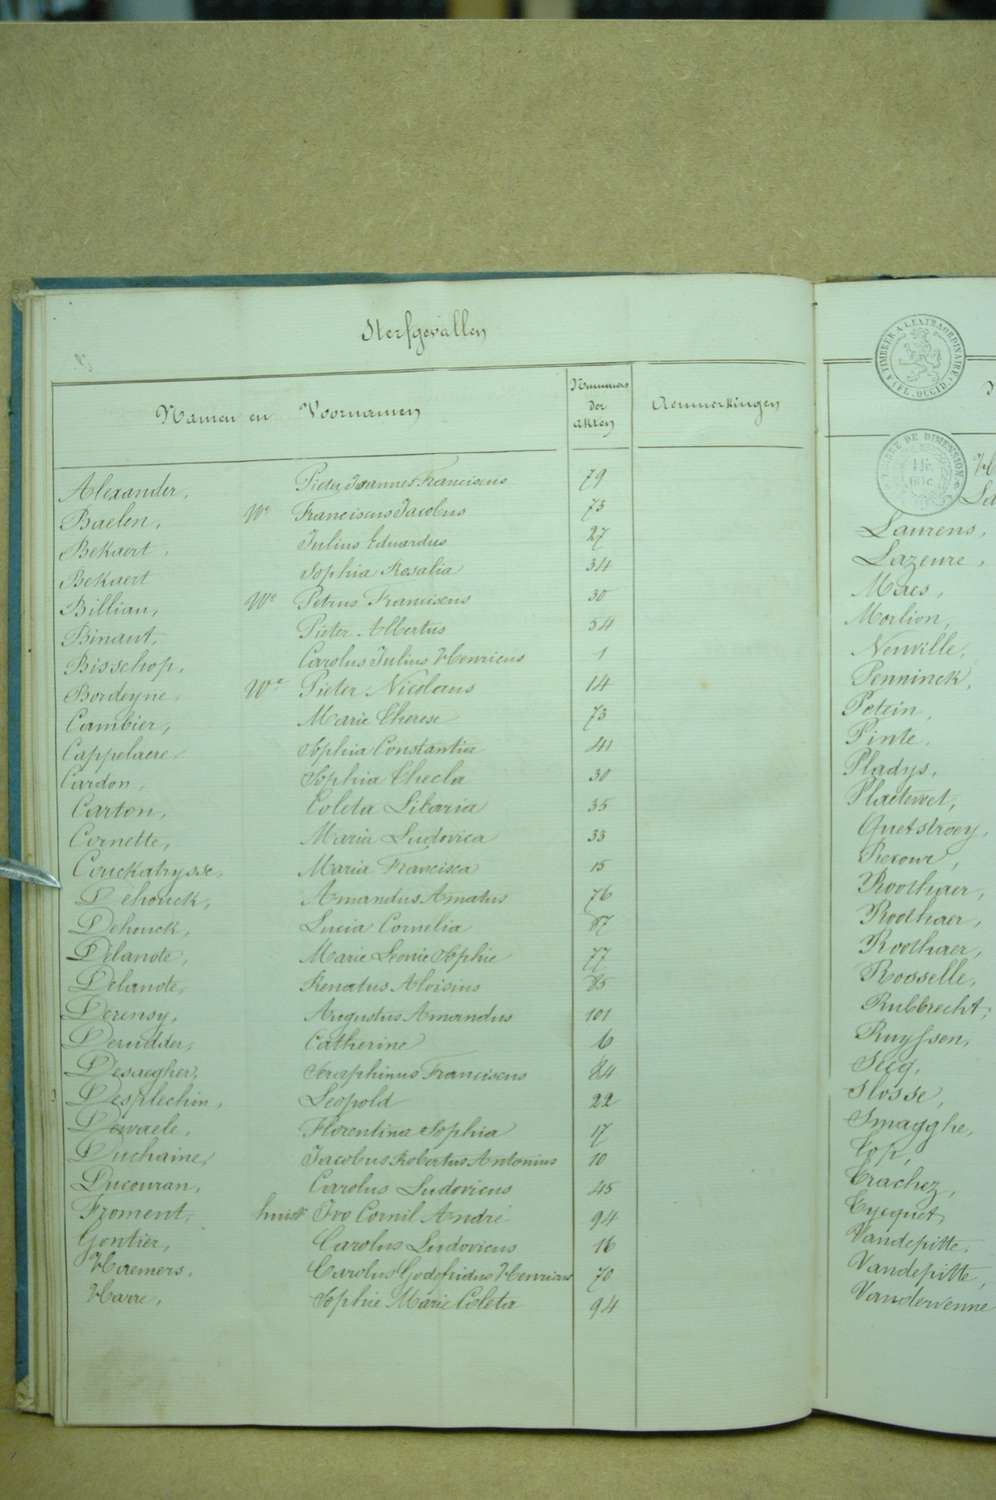 Sterfgevallen
Namen en Voornamen
Nummers der akten
Aenmerkingen
Alexander, Pieter Joannes Franciscus 79
Baelen, We Franciscus Jacobus 73
Bekaert, Julius Eduardus 27
Bekaert Sophia Rosalia 34
Billiau, We Petrus Franciscus 30
Binaut, Pieter Albertus 34
Bisschop, Carolus Julius Henricus 1
Bordeyne We Pieter Nicolaus 14
Cambier, Marie Therese 73
Cappelaere Sophia Constantia 41
Cardon, Sophia Thecla 30
Carton, Coleta Libaria 35
Cornette, Maria Ludovica 33
Couckahysse, Maria Francisca 15
Dehouck, Amandus Amatus 76
Dehouck, Lucia Cornelia 87
Delanote, Marie Leonie Sophie 77
Delanote, Renatus Aloisius 85
Derensy, Augustus Amandus 101
Deruelder, Catherine 6
Desaegher, Seraphinus Franciscus 84
Desplechin, Leopold 22
Dewaele, Florentina Sophia 17
Duchaine, Jacobus Robertus Antonius 10
Ducouran, Carolus Ludovicus 45
Froment, Ivo Cornil André 94
Gontier, Carolus Ludovicus 16
Haemers, Carolus Godefridus Henricus 70
Harre, Sophie Marie Coleta 94
TIMBRE A L'EXTRAORDINAIRE
FL. OCCID.
DE DIMENSION
Laurens,
Lazeure,
Maes,
Morlion,
Neuville,
Penninck,
Potein,
Pinte,
Pladys,
Plaetevoet,
Quetstroey,
Recour,
Roothaer,
Roothaer,
Roothaer,
Rosselle,
Rubbrecht,
Ruyssen,
Secq,
Slosse,
Smagghe,
Top,
Trachez,
Tycquet,
Vandepitte,
Vandepitte,
Vandervenne